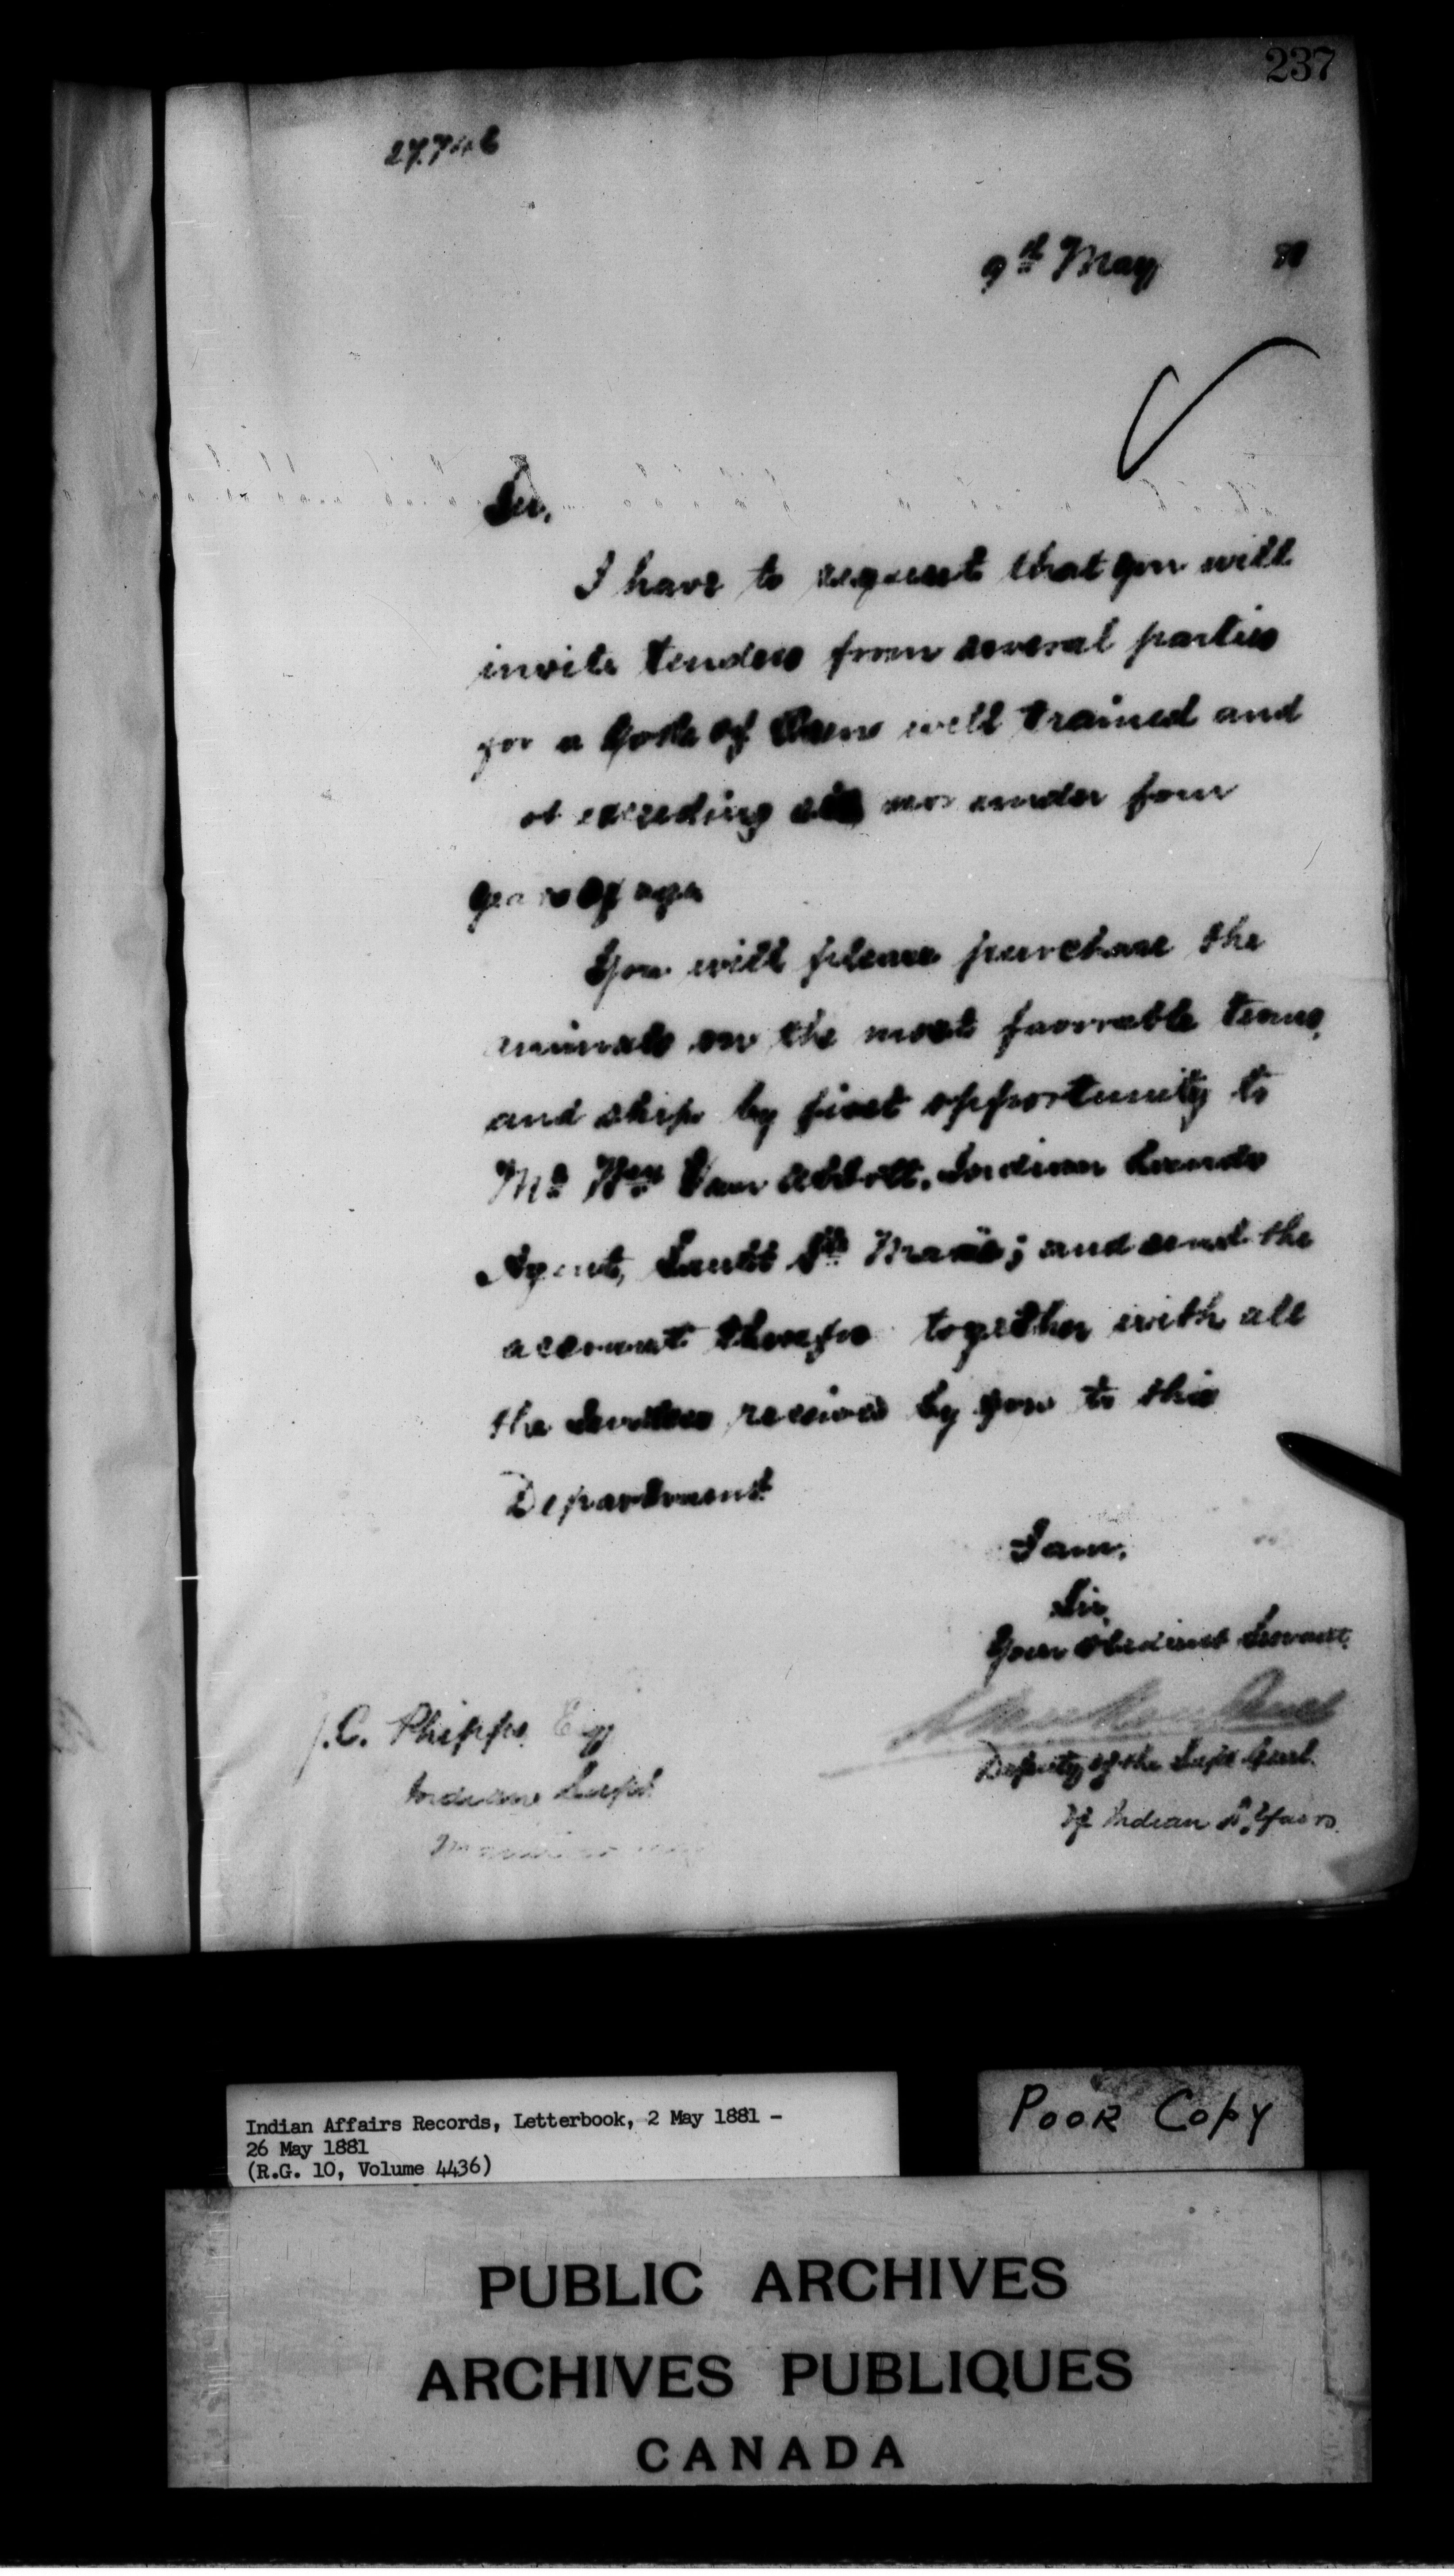 237
9th May 81
Sir,
I have to request that you will
invite tenders from several parties
for a yoke of Oxen well trained and
exceeding six nor under four
years of age
You will please purchase the
animals on the most favorable terms,
and ship by first opportunity to
Mr Wm Van Abbott, Indian Lands
Agent, Sault Ste Marie; and send the
account therefor together with all
the tenders received by you to this
Department.
I am,
Sir,
Your obedient Servant.
Deputy of the Supt Genl.
Of Indian Affairs.
J.C. Phipps Esq
Indian Supt
Indian Affairs Records, Letterbook, 2 May 1881 –
26 May 1881
(R.G. 10, Volume 4436)
POOR COPY
PUBLIC ARCHIVES
ARCHIVES PUBLIQUES
CANADA